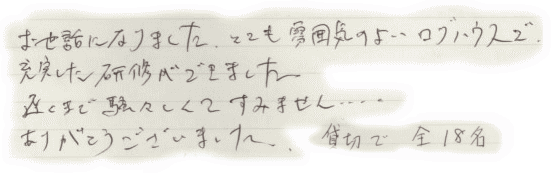 お世話になりました。とても雰囲気のよい ログハウスで、
充実した研修ができました
遅くまで騒々しくてすみません.....
ありがとうございました。 貸切で 全18名